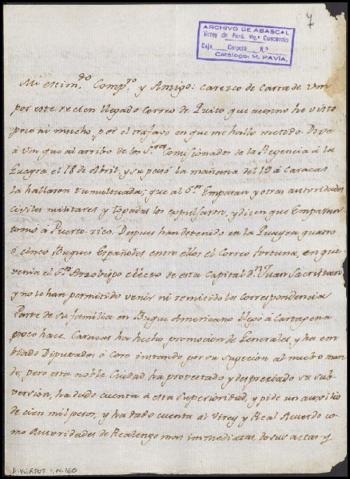 7
ARCHIVO DE ABASCAL
Virrey del Perú, Mqs. Concordia
Caja Carpeta N.º
Catálogo: M. PAVÍA.
Mi estim.do Comp.ro y Amigo: Carezco de Carta de Vm
por este recien llegado Correo de Quito, que aunq.e no es
mucho, por el trafago en que me hallo metido. Dire
á Vm que al arribo de los S.res Comisionados de la Regencia á la
Guayra el 18 de Abril, y su paso la mañana del 19 á Caracas
la hallaron tumultuada; que al S.or Emparan y otras autoridades
civiles militares y togadas los expulsaron, y dicen que Emparan
tomó á Puerto-rico. Despues han detenido en la Guayra quatro
ó cinco Buques Españoles entre ellos el Correo fortuna, en que
venia el S.or Arzobispo electo de esta Capital D.n Juan Sacristan
y no lo han permitido venir ni remitido la Correspondencia
Parte de su familia en Buque Americano llegó á Cartagena
poco hace. Caracas ha hecho promocion de Generales, y ha em-
biado Diputados á Coro instando por su sugecion al nuevo man-
do; pero esta noble Ciudad ha protextado y despreciado su sub-
version, ha dado cuenta á esta Superioridad, y pide un auxilio
de cien mil pesos, y ha dado cuenta al Virey y Real Acuerdo co-
mo Autoridades de Realengo mas inmediatas de sus actas y